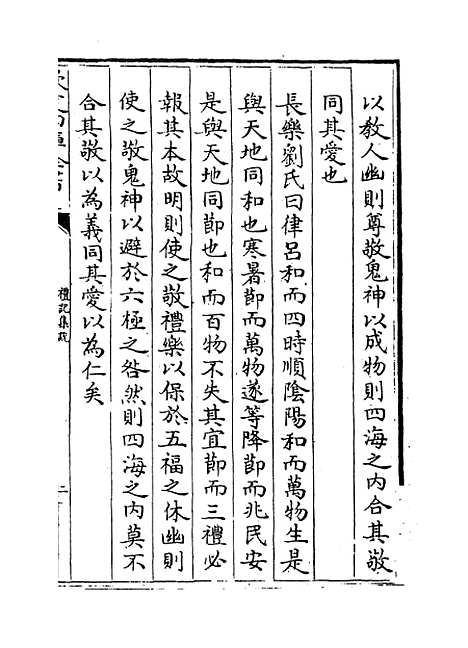 以教人幽則尊敬鬼神以成物則四海之内合其敬
同其愛也
長樂劉氏曰律呂和而四時順陰陽和而萬物生是
與天地同和也寒暑節而萬物遂等降節而兆民安
是與天地同節也和而百物不失其宜節而三禮必
報其本故明則使之敬禮樂以保於五福之休幽則
使之敬鬼神以避於六極之咎然則四海之内莫不
合其敬以為義同其愛以為仁矣
禮記集説
二